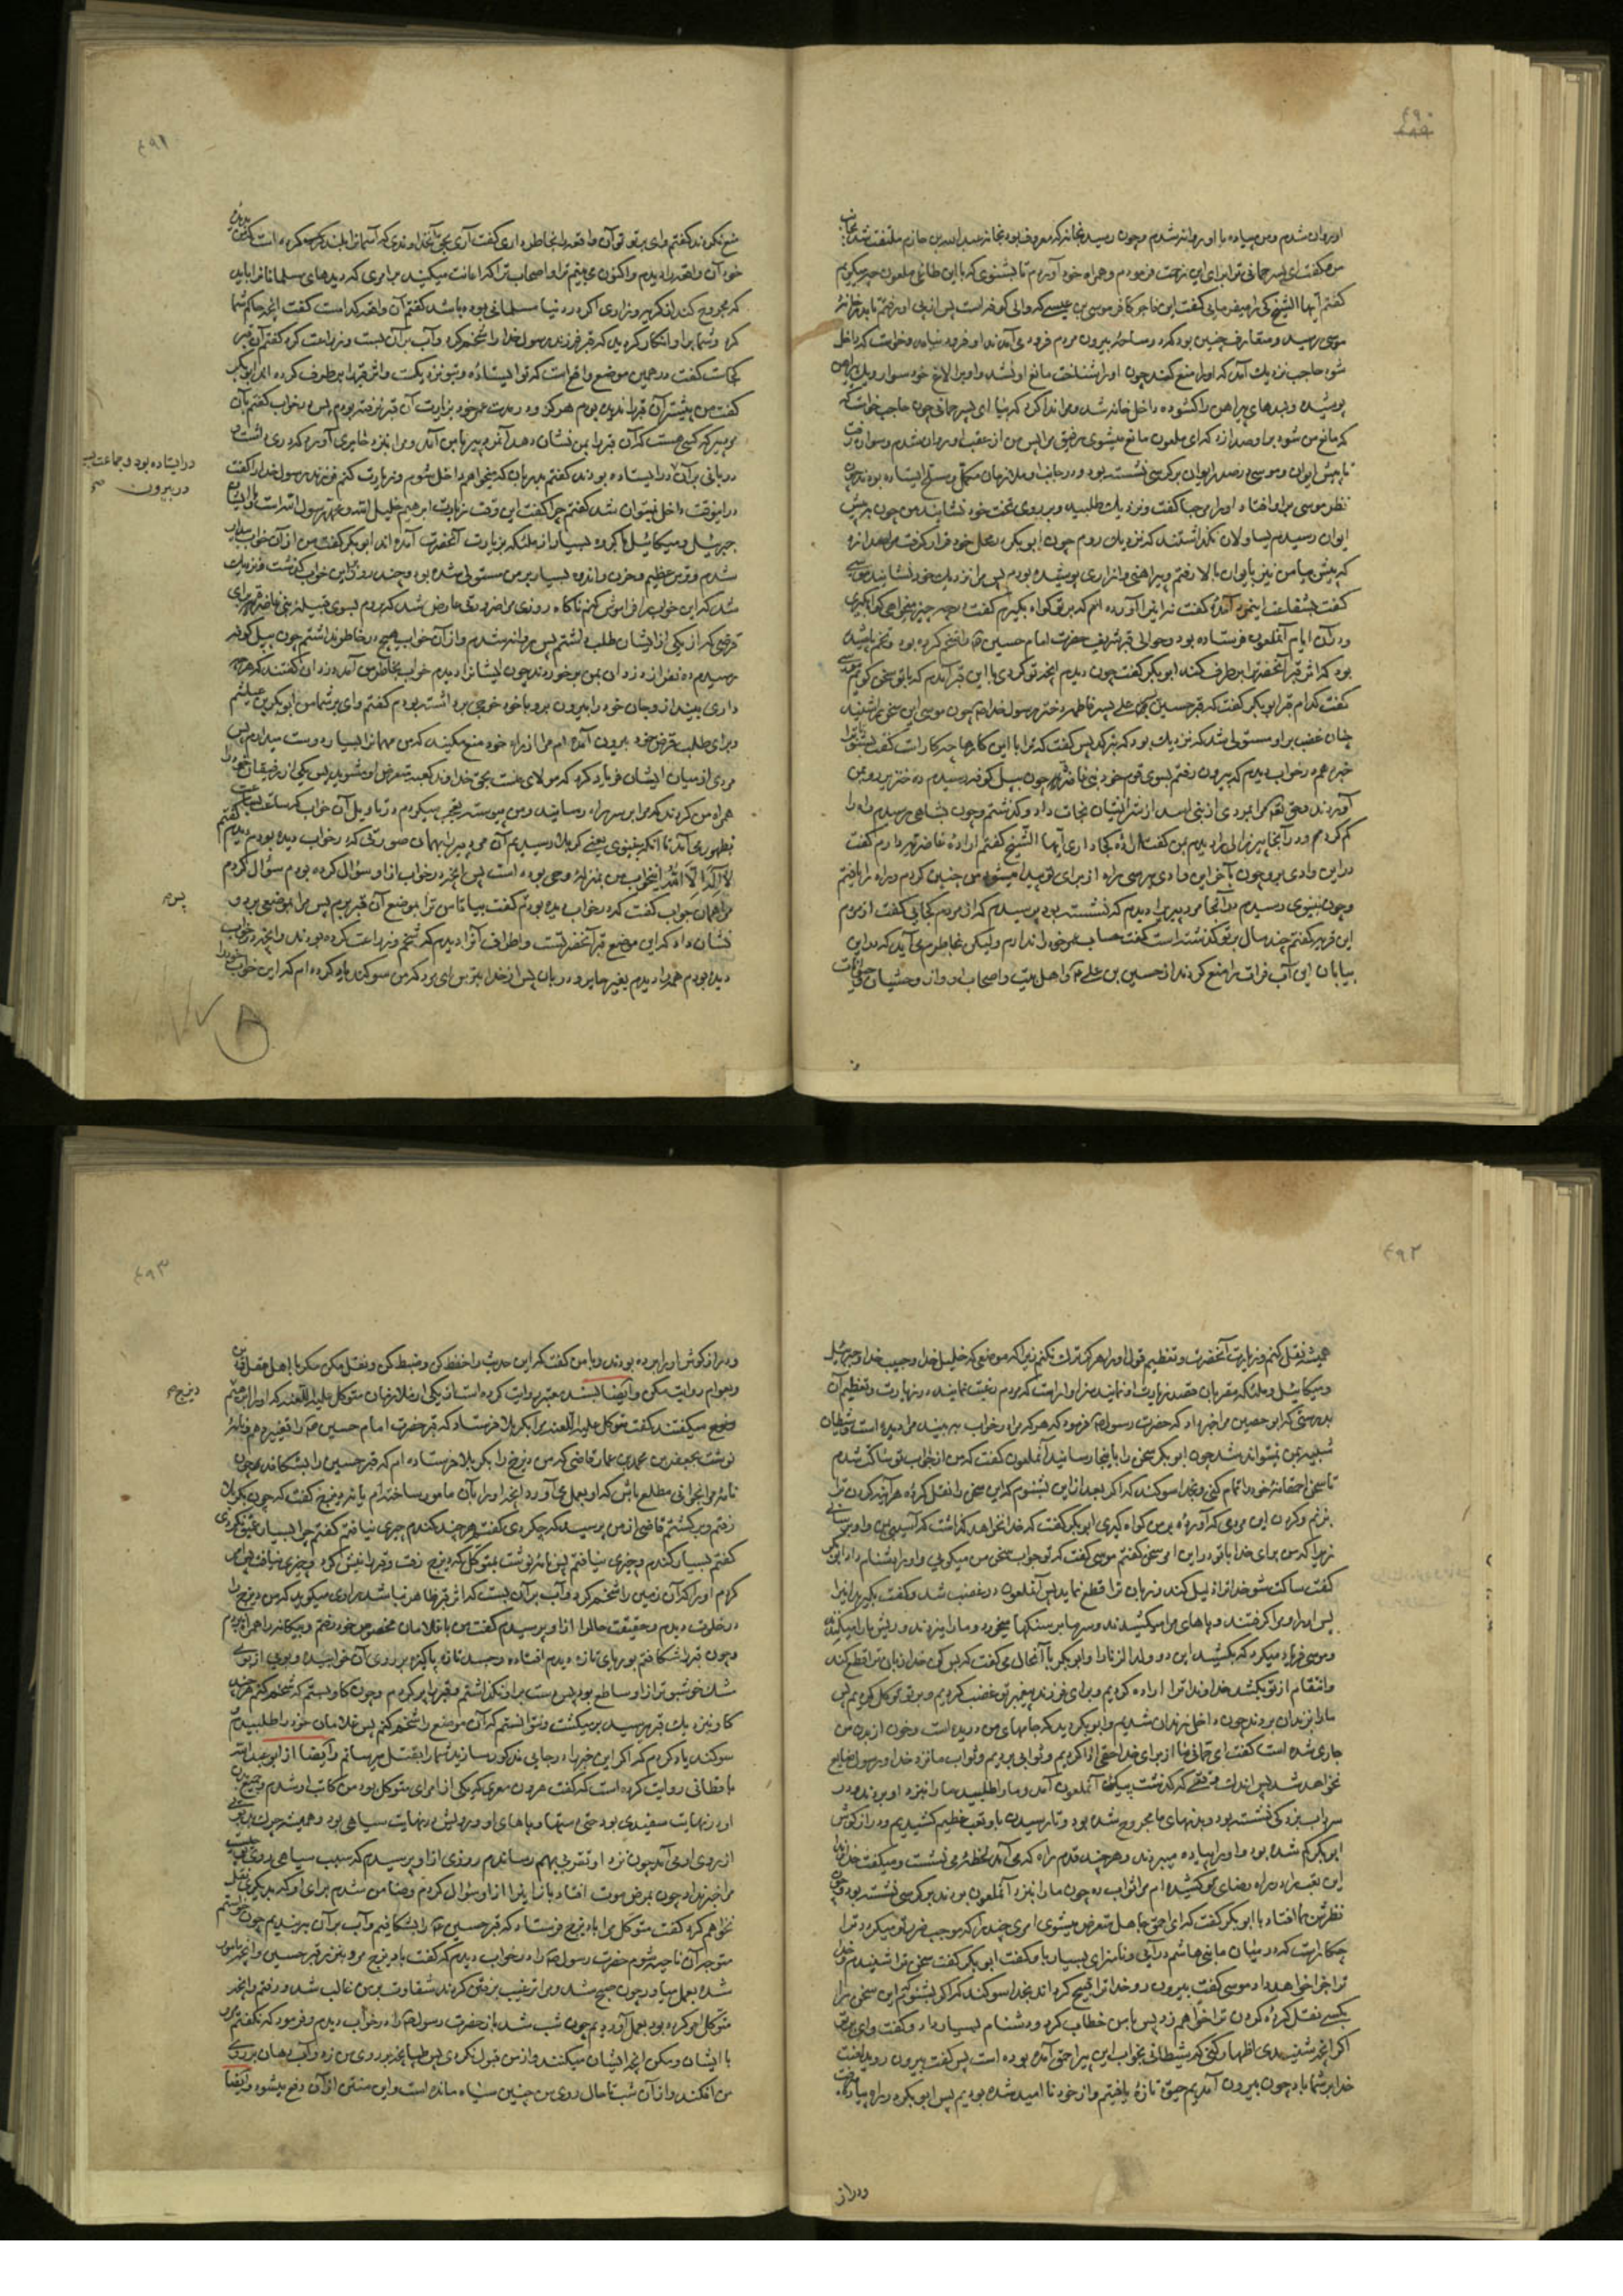 ۴۹۰
او روان شدم و من پیاده با او روانه شدم و چون رسید بخانه که معروف بود بخانه عبدالله بن حازم ملتفت شد بجانب
من و گفت ای پسر حمانی ترا برای این زحمت فرمودم و همراه خود آوردم تا بشنوی که با این طاغی ملعون چه میگویم
گفتم ایها الشیخ کی را میفرمایی گفت این فاجر کافر موسی بن عیسی که والی کوفه است پس از پی او رفتم تا بدر خانهٔ
موسی رسید و متعارف چنین بود که در ساحت بیرون مردم فرود می آمدند او فرود نیامد و خواست که داخل
شود حاجب نزدیك آمد که او را منع کند چون او را شناخت مانع او نشد و او بر الاغ خود سوار و یك پیراهن
پوشیده و بندهای پیراهن را گشوده داخل خانه شد و مرا ندا کرد که بیا ای پسر حمانی چون حاجب خواست که
که مانع من شود برا و صدا زد که ای ملعون مانع میشوی رفیق مرا پس من از عقب او روان شدم و سواره رفت
تا پیش ایوان و موسی در صدر ایوان بر کرسی نشسته بود و در جانب او ملازمان مکمل و مسلح ایستاده بودند چون
نظر موسی بر او افتاد او را مرحبا گفت و نزدیك طلبید و بر روی تخت خود نشانید من چون به پیش
ایوان رسیدم یساولان نگذاشتند که نزدیك روم چون ابوبکر در محل خود قرار گرفت مرا صدا زد
که پیش بیا من نیز بایوان بالا رفتم و پیراهنی و ازاری پوشیده بودم پس مرا نزدیك خود نشانید موسی
گفت بشفاعت اینمرد آمدهٔ گفت نه این را آورده ام که بر تو گواه بگیرم گفت در چه چیز میخواهی گواه بگیری
و در آن ایام آنملعون فرستاده بود و حوالی قبر شریف حضرت امام حسین ع را شخم کرده بود و تخم پاشیده
بود که اثر قبر آنحضرت را برطرف کند ابوبکر گفت چون دیدم آنچه تو کردی با این قبر آمدم که با تو سخن گویم موسی
گفت کدام قبر ابوبکر گفت که قبر حسین بن علی پسر فاطمه دختر رسول خدا ص چون موسی این سخن را شنید
چنان خضب بر او مستولی شد که نزدیك بود که بترکد پس گفت که ترا با این کارها چه کار است گفت بشنو تا ترا
خبر دهم در خواب دیدم که بیرون رفتم بسوی قوم خود بنی غاضره چون بپل کوفه رسیدم ده خنزیر رو بمن
آوردند و حق تعالی مرا بمردی از بنی اسد از شر ایشان نجات داد و گذشتم و چون بشاهی رسیدم راه را
گم کردم و در آنجا پیر زالی را دیدم بمن گفت ارادهٔ کجا داری ایها الشیخ گفتم ارادهٔ غاضریه دارم گفت
در این وادی برو چون بآخر این وادی برسی راه از برای تو پیدا میشود من چنین کردم و راه را یافتم
و چون بنینوی رسیدم در آنجا مرد پیری را دیدم که نشسته بود پرسیدم که از مردم کجایی گفت از مردم
این قریه گفتم چند سال بر تو گذشته است گفت حساب عمر خود را ندارم و لیکن بخاطرم می آید که در این
بیابان این آب فرات را منع کردند از حسین بن علی ع و اهل بیت و اصحاب او و از وحشیان و حیوانات
۴۹۱
منع نکردند گفتم وای بر تو تو آن واقعه را بخاطر داری گفت آری بحق آنخداوندی که آسمانها بلند کرده است که من
خود آن واقعه را دیدم و اکنون می بینم ترا و اصحاب ترا که اعانت میکنید بر امری که دیدهای مسلمانان را باید
که مجروح کند از گریه و زاری اگر در دنیا مسلمانی بوده باشد گفتم آن واقعه کدام است گفت آنچه حاکم شما
کرد و شما بر او انکار نکردید که قبر فرزند رسول خدا را شخم کرد و آب بر آن بست و زراعت کرد گفتم آن قبر
کجاست گفت در همین موضع واقع است که تو ایستادهٔ و بتو نزدیکست و اثر قبر را برطرف کرده اند ابوبکر
گفت من پیشتر آن قبر را ندیده بودم هرگز و در مدت عمر خود بزیارت آن قبر نرفته بودم پس در خواب گفتم بآن
مرد پیر که کسی هست که آن قبر را بمن نشان دهد آنمرد پیر با من آمد و مرا نزد حایری آورد که دری داشت و
دربانی بر آن در ایستاده بودند گفتم بدربان که میخواهم داخل شوم و زیارت کنم فرزند رسول خدا را گفت
در اینوقت داخل نمیتوان شد گفتم چرا گفت این وقت زیارت ابراهیم خلیل الله و محمد رسول الله است و با ایشان
جبرئیل و میکائیل با گروه بسیار از ملئکه بزیارت آنحضرت آمده اند ابوبکر گفت من از آن خواب بیدار
شدم و ترس عظیم و حزن و اندوه بسیار بر من مستولی شده بود و چند روز بر این خواب گذشت و نزدیك
شد که این خواب را فراموش کنم ناگاه روزی مرا ضرورتی عارض شد که بروم بسوی قبیله بنی غاضره برای
قرضی که از یکی از ایشان طلب داشتم پس روانه شدم و از آن خواب هیچ در خاطر نداشتم چون بپل کوفه
رسیدم ده نفر از دزدان بمن برخوردند چون ایشانرا دیدم خواب بخاطرم آمد دزدان گفتند که هرچه
داری بینداز و جان خود را بیرون برو با خود خرجی برداشته بودم گفتم وای بر شما من ابوبکر بن عیاشم
و برای طلب قرض خود بیرون آمده ام مرا از راه خود منع مکنید که من مهمانرا بسیار دوست میدارم پس
مردی از میان ایشان فریاد کرد که مولای منست بحق خداوند کعبه متعرض او مشوید پس یکی از رفیقان خود را
همراه من کردند که مرا بر سر راه رسانید و من پیوسته تعجب میکردم در تاویل آن خواب که ساعت بساعت
بظهور می آمد تا آنکه بنینوی یعنی کربلا رسیدم آن مرد پیر را بهمان صورتی که در خواب دیده بودم دیدم گفتم
لا اله الا الله اینخواب من بمنزلهٔ وحی بوده است پس آنچه در خواب از او سؤال کرده بودم سؤال کردم
مرا همان جواب گفت که در خواب دیده بودم گفت بیا تا من ترا بموضع آن قبر برم پس مرا بموضعی برد و
نشان داد که این موضع قبر آنحضرتست و اطراف آنرا دیدم که شخم و زراعت کرده بودند و آنچه در خواب
دیده بودم همه را دیدم بغیر حایر و دربان پس از خدا بترس ای مرد که من سوگند یاد کرده ام که این خواب را
در ایستاده بود و جماعت
در بیرون صح
پس
۴۹۲
همیشه نقل کنم و زیارت آنحضرت و تعظیم قول او را هرگز ترك نکنم زیرا که موضعی که خلیل خدا و حبیب خدا و جبرئیل
و میکائیل و ملئکه مقربان قصد زیارت او نمایند سزاوار است که مردم رغبت نمایند در زیارت و تعظیم آن
بدرستی که ابو حصین مرا خبر داد که حضرت رسول ص فرمود که هر که مرا در خواب به بیند مرا دیده است و شیطان
شبیه من نمیتواند شد چون ابوبکر سخن را باینجا رسانید آنملعون گفت که من از جواب تو ساکت شدم
تا سخن احمقانهٔ خود را تمام کنی و بخدا سوگند که اگر بعد از این بشنوم که این سخن را نقل کردهٔ هر آینه گردن ترا
بزنم و گردن این مردی که آوردهٔ بر من گواه گیری ابوبکر گفت که خدا نخواهد گذاشت که آسیبی بمن و او برسانی
زیرا که من برای خدا با تو در این امر سخن گفتم موسی گفت که تو جواب سخن من میگویی و او را دشنام داد ابوبکر
گفت ساکت شو خدا ترا ذلیل کند و زبان ترا قطع نماید پس آنملعون در غضب شد و گفت بگیرید اینرا
پس او را و مرا گرفتند و پاهای مرا میکشیدند و سرها بر سنگها میخورد و ما را میزدند و ریش ما را میکندند
و موسی فریاد میکرد که بکشید این دو ولد الزنا را و ابوبکر با آنحال می گفت که بس کن خدا زبان ترا قطع کند
و انتقام از تو بکشد خداوندا ترا اراده کردیم و برای فرزند پیغمبر تو غضب کردیم و بر تو توکل کردیم پس
ما را بزندان بردند چون داخل زندان شدیم و ابوبکر دید که جامهای من دریده است و خون از بدن من
جاری شده است گفت ای حمانی ما از برای خدا حقی ادا کردیم و ثوابی بردیم و ثواب ما نزد خدا و رسول ضایع
نخواهد شد پس اندك وقتی که گذشت پیك آنملعون آمد و ما را طلبید ما را نزد او بردند و در
سرداب بزرگی نشسته بود و بدنهای ما مجروح شده بود و تا رسیدن باو تعب عظیم کشیدیم و درازگوش
ابوبکر گم شده بود و او را پیاده میبردند و هر چند قدم راه که می آمد لحظهٔ می نشست و میگفت خداوندا
این تعب را در راه رضای تو کشیده ام مرا ثواب ده چون ما را بنزد آنملعون بردند بر کرسی نشسته بود و چون
نظرش بما افتاد با ابوبکر گفت که ای احمق جاهل متعرض میشوی امری چند را که موجب ضرر تو میگردد ترا
چکار است که در میان ما بنی هاشم در آیی و ناسزای بسیار باو گفت ابوبکر گفت سخن ترا شنیدم و خدا
ترا جزا خواهد داد موسی گفت بیرون رو خدا ترا قبیح گرداند بخدا سوگند که اگر بشنوم این سخن را
بکسی نقل کردهٔ گردن ترا خواهم زد پس با من خطاب کرد و دشنام بسیار داد و گفت وای بر تو
اگر آنچه شنیدی اظهار کنی که شیطانی بخواب این پیر احمق آمده بوده است پس گفت بیرون روید لعنت
خدا بر شما باد چون بیرون آمدیم حیوة تازهٔ یافتیم و از خود نا امید شده بودیم پس ابوبکر در راه پیاده میرفت
و دراز
۴۹۳
و دراز گوش او را برده بودند و با من گفت که این حدیث را حفظ کن و ضبط کن و نقل مکن مگر با اهل عقل و دین
و بعوام روایت مکن و ایضا بسند معتبر روایت کرده است از یکی از ملازمان متوکل علیه اللعنه که او را ابراهیم
دیزج میگفتند گفت متوکل علیه اللعنه مرا بکربلا فرستاد که قبر حضرت امام حسین ع را تغییر دهم و نامهٔ
نوشت بجعفر بن محمد بن عمار قاضی که من دیزج را بکربلا فرستاده ام که قبر حسین را بشکافد چون
نامه مرا بخوانی مطلع باش که او بعمل می آورد آنچه او را بآن مامور ساخته ام یا نه دیزج گفت که چون بکربلا
رفتم و برگشتم قاضی از من پرسید که چکردی گفتم هر چند کندم چیزی نیافتم گفتم چرا بسیار عمیق نکردی
گفتم بسیار کندم و چیزی نیافتم پس نامه نوشت بمتوکل که دیزج رفت و قبر را نبش کرد و چیزی نیافت پس من
کردم او را که آن زمین را شخم کرد و آب بر آن بست که اثر قبر ظاهر نباشد راوی میگوید که من دیزج را
در خلوت دیدم و حقیقت حال را از او پرسیدم گفت من با غلامان مخصوص خود رفتم و بیگانه را همراه نبردم
و چون قبر را شکافتم بوریای تازه دیدم افتاده و جسد تازه پاکیزه بر روی آن خوابیده و بوی از بوی
مشك خوشبوتر از او ساطع بود پس دست بر او نگذاشتم و قبر را پر کردم و چون گاو بستم که شخم کنم هر چند
گاو نزدیك قبر میرسید بر میگشت و نتوانستم که آن موضع را شخم کنم پس غلامان خود را طلبیدم
سوگند یاد کردم که اگر این خبر را در جایی مذکور سازید شما را بقتل میرسانم و ایضا از ابو عبدالله
باقطانی روایت کرده است که گفت هرون معری که یکی از امرای متوکل بود من کاتب او شدم و جمیع بدن
او در نهایت سفیدی بود حتی دستها و پاهای او و رویش در نهایت سیاهی بود و همیشه چرك بدبویی
از روی او می آمد چون نزد او تقرب بهم رساندم روزی از او پرسیدم که سبب سیاهی روی تو چیست
مرا خبر نداد چون بمرض موت افتاد باز اینرا از او سؤال کردم و ضامن شدم برای او که بدیگری نقل
نخواهم کرد گفت متوکل مرا با دیزج فرستاد که قبر حسین ع را بشکافیم و آب بر آن ببندیم چون خواستم
متوجه آن ناحیه شوم حضرت رسول ص را در خواب دیدم که گفت با دیزج مرو بنزد قبر حسین و آنچه مامور
شدهٔ بعمل میاور چون صبح شد و مرا ترغیب برفتن کردند شقاوت بر من غالب شد و رفتم و آنچه
متوکل امر کرده بود بعمل آوردیم چون شب شد باز حضرت رسول ص را در خواب دیدم و فرمود که نگفتم مرو
با ایشان و مکن آنچه ایشان میکنند و از من قبول نکردی پس طپانچه بر روی من زد و آب دهان بر روی
من افکند و از آن شب تا حال روی من چنین سیاه مانده است و این منتن از آن دفع میشود و ایضا
دیزج